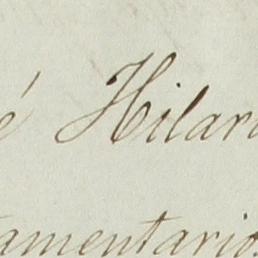 é Hilar
tamentario